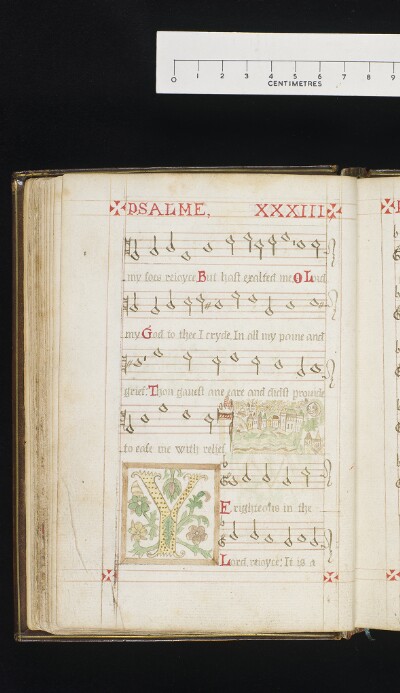 0 1 2 3 4 5 6 7 8 9
CENTIMETRES
PSALME, XXXIII
my foes reioyce But hast exalted me O Lord
my God to thee I cryde In all my paine and
grief: Thou gauest ane eare and didst provide
to ease me with relief
Y
E righteous in the
Lord, reioyce: It is a